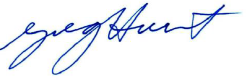 Greg Hunt